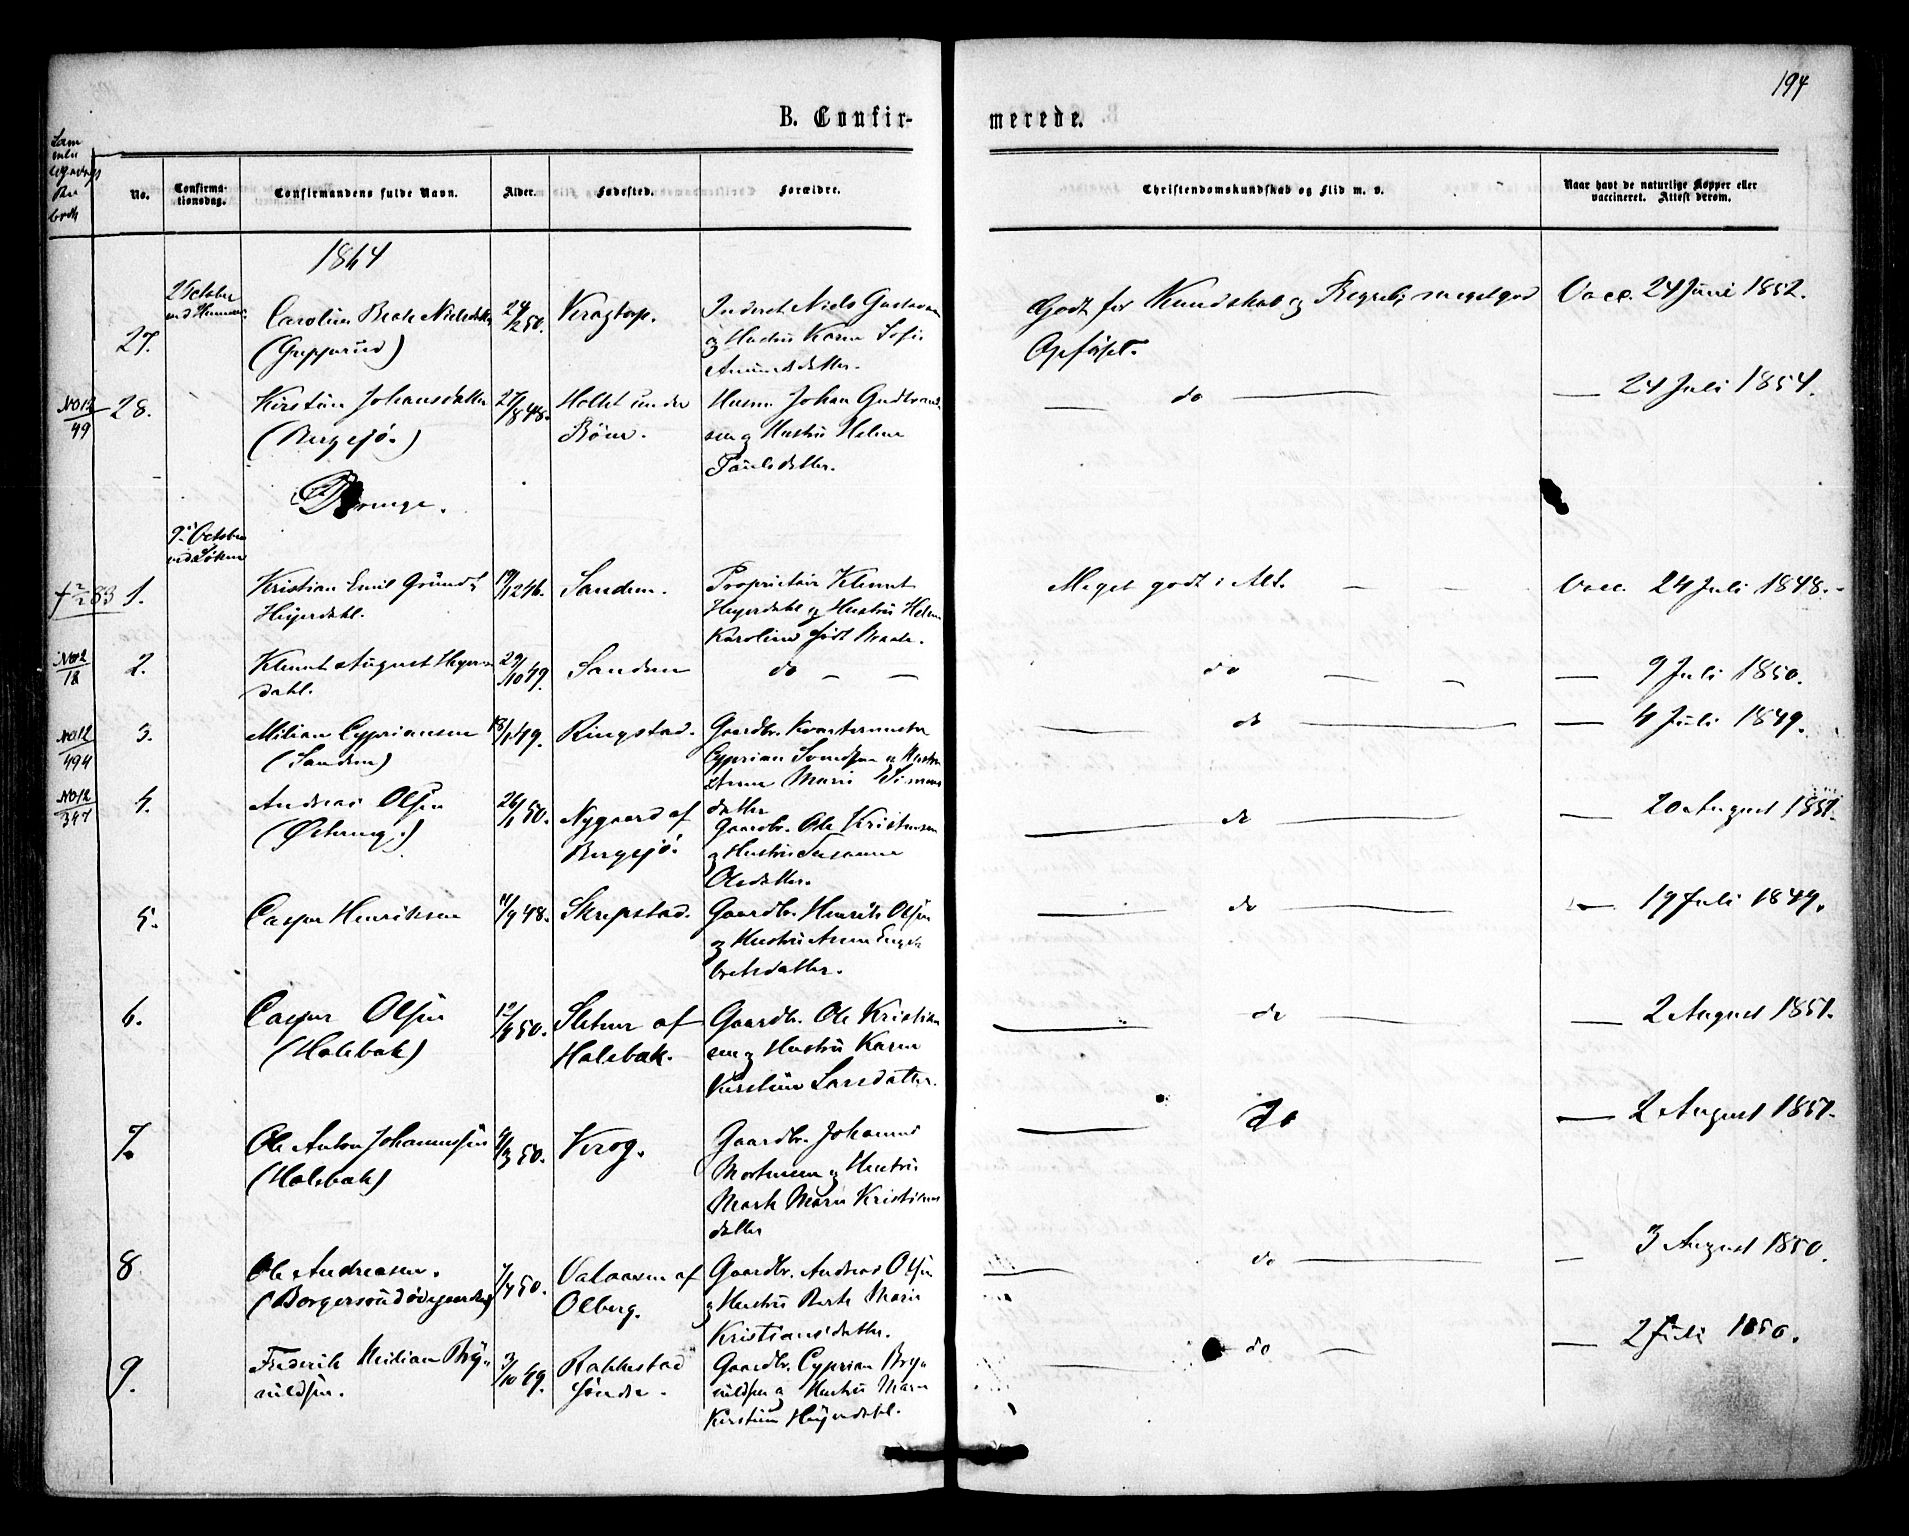 194
B. Confir-
merede.
No.
Confirma-
tionsdag.
Confirmandens fulde Navn.
Alder.
Fødested.
Forældre.
Christendomskundskab og Flid m. v.
Naar havt de naturlige Kopper eller
vaccineret. Attest derom.
1864
27.
2 October
Carolin Beate Nielsdatter
24/2 50.
Kragtorp.
Inderst Niels Gustavsen
og Hustru Karen Sofie
Amundsdatter.
Godt for Kundskab og Begreb; meget god
Opførsel.
Vacc. 24 Juni 1852.
No 12
49
28.
Kirstine Johansdatter
(Bergesjø.)
27/8 48.
Holtet under
Huusm. Johan Gudbrand-
sen og Hustru Helene
Paulsdatter.
— do —
— 24 Juli 1854.
Drenge.
9' October
1.
Kristian Emil Gründt
Heyerdahl.
19/12 46.
Sanden.
Proprietair Klemmet
Heyerdahl og Hustru Helene
Karoline født Braate.
Meget godt i Alt. — —
Vacc. 24 Juli 1848.
No 2
18
2.
Klemmet August Heyer-
dahl.
29/10 49.
Sanden
do — —
do — —
— 9 Juli 1850.
No 12
494
3.
Milian Cypriansen
(Sanden)
18/1 49.
Ringstad.
Gaardbr. Kvartermester
Cyprian Svendsen og Hustru
Anne Marie Simens
datter
— do —
— 4 Juli 1849.
No 12
347
4.
Andreas Olsen
26/1 50.
Nygaard af
Bergesjø.
Gaardbr. Ole Kristensen
og Hustru Susanne
Olsdatter.
— do —
— 20 August 1851.
5.
Casper Henriksen
11/9 48.
Skrepstad.
Gaardbr. Henrik Olsen
og Hustru Anne Enge
bretsdatter.
— do —
— 19 Juli 1849.
6.
Casper Olsen
(Holebak)
Sletner af
Holebak.
Gaardbr. Ole Kristian
sen og Hustru Karen
Kirstine Larsdatter.
— do —
— 2 August 1851.
7.
Ole Anton Johannessen
(Holebak)
Krog.
Gaardbr. Johannes
Mortensen og Hustru
Marte Maria Kristians
datter
— do
— 2 August 1851.
8
Ole Andreasen.
7/4 50.
Valaasen af
Olberg.
Gaardbr. Andreas Olsen
og Hustru Berte Marie
Kristiansdatter.
— do —
— 3 August 1850.
9.
Frederik Milian Bry-
nildsen.
3/10 49.
Rakkestad
Søndre.
Gaardbr. Cyprian Bry
nildsen og Hustru Maren
Kirstine Heyerdahl.
— do —
— 2 Juli 1850.